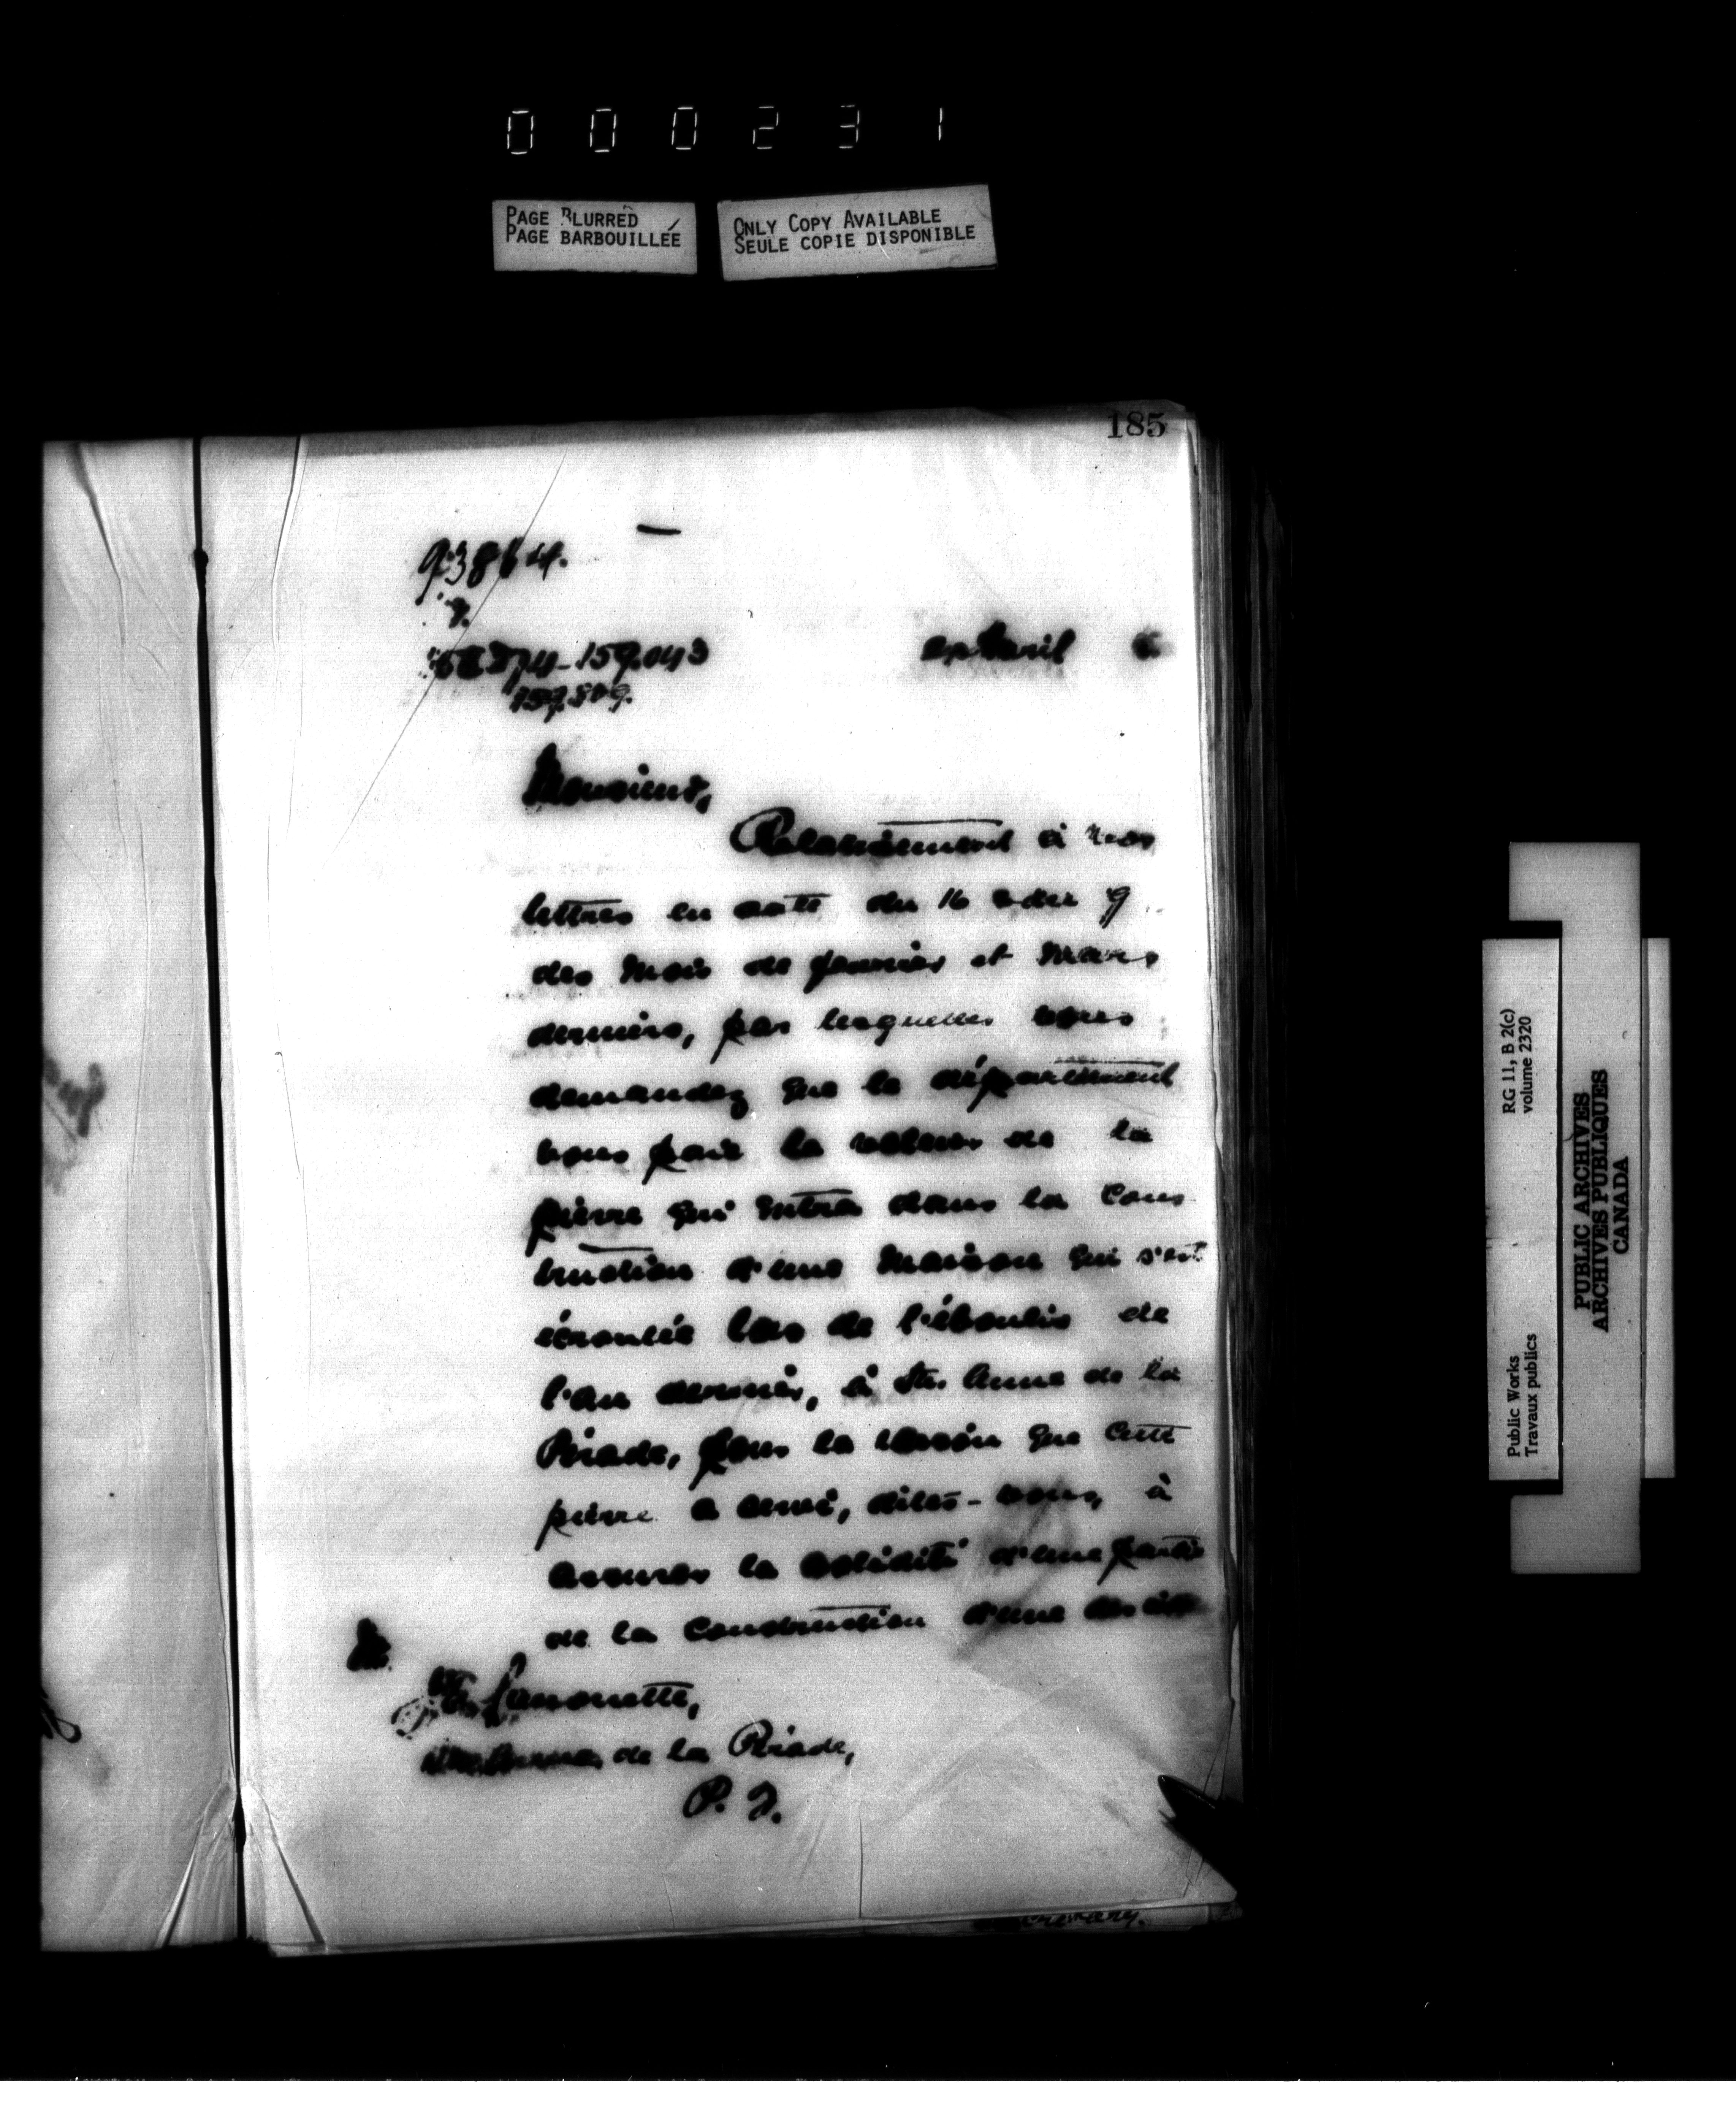 000231
PAGE BLURRED
PAGE BARBOUILLÉE
ONLY COPY AVAILABLE
SEULE COPIE DISPONIBLE
185
Avril
Monsieur,
Relativement à vos
lettres en date du 16 & du 9
des mois de janvier et mars
derniers, par lesquelles vous
demandez que le département
vous paie la valeur de la
pierre qui entra dans la cons
truction d'une maison qui s'est
écroulée lors de l'éboulis de
l'an dernier, à Ste. Anne de la
Pérade, pour la raison que cette
pierre a servi, dites-vous, à
assurer la solidité d'une partie
de la construction d'une des
Lanouette,
de la Pérade,
P. Q.
RG 11, B 2(c)
volume 2320
Public Works
Travaux publics
PUBLIC ARCHIVES
ARCHIVES PUBLIQUES
CANADA